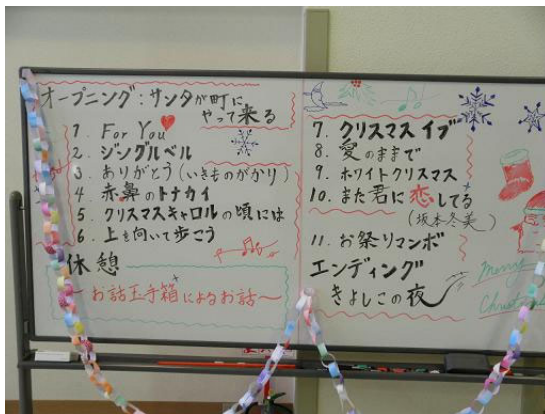 オープニング:サンタが町に
やって来る
1. For You
2. ジングルベル
3. ありがとう(いきものがかり)
4 赤鼻のトナカイ
5. クリスマスキャロルの頃には
6. 上を向いて歩こう
休憩
~お話玉手箱によるお話~
7. クリスマスイブ
8 愛のままで
9. ホワイトクリスマス
10. また君に恋してる
(坂本冬美)
11. お祭りマンボ
エンディング
きよしこの夜
Merry
Christmas